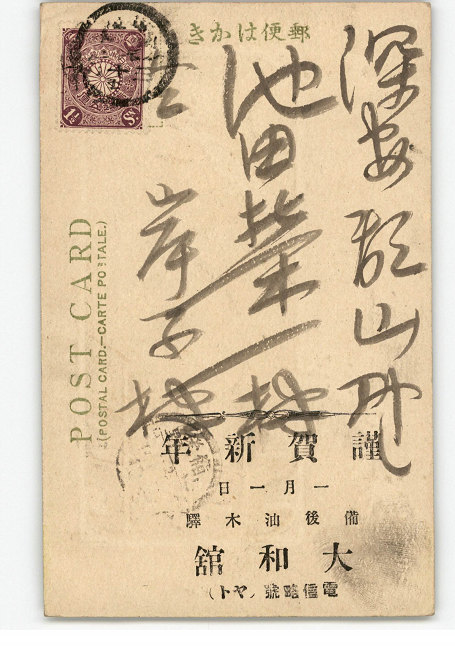 郵便はかき
深安郡山野
池田一様
岸子様
POST CARD
(POSTAL CARD.—CARTE POSTALE.)
謹賀新年
一月一日
備後油木驛
大和舘
電信略號(ヤト)
1½ Sn